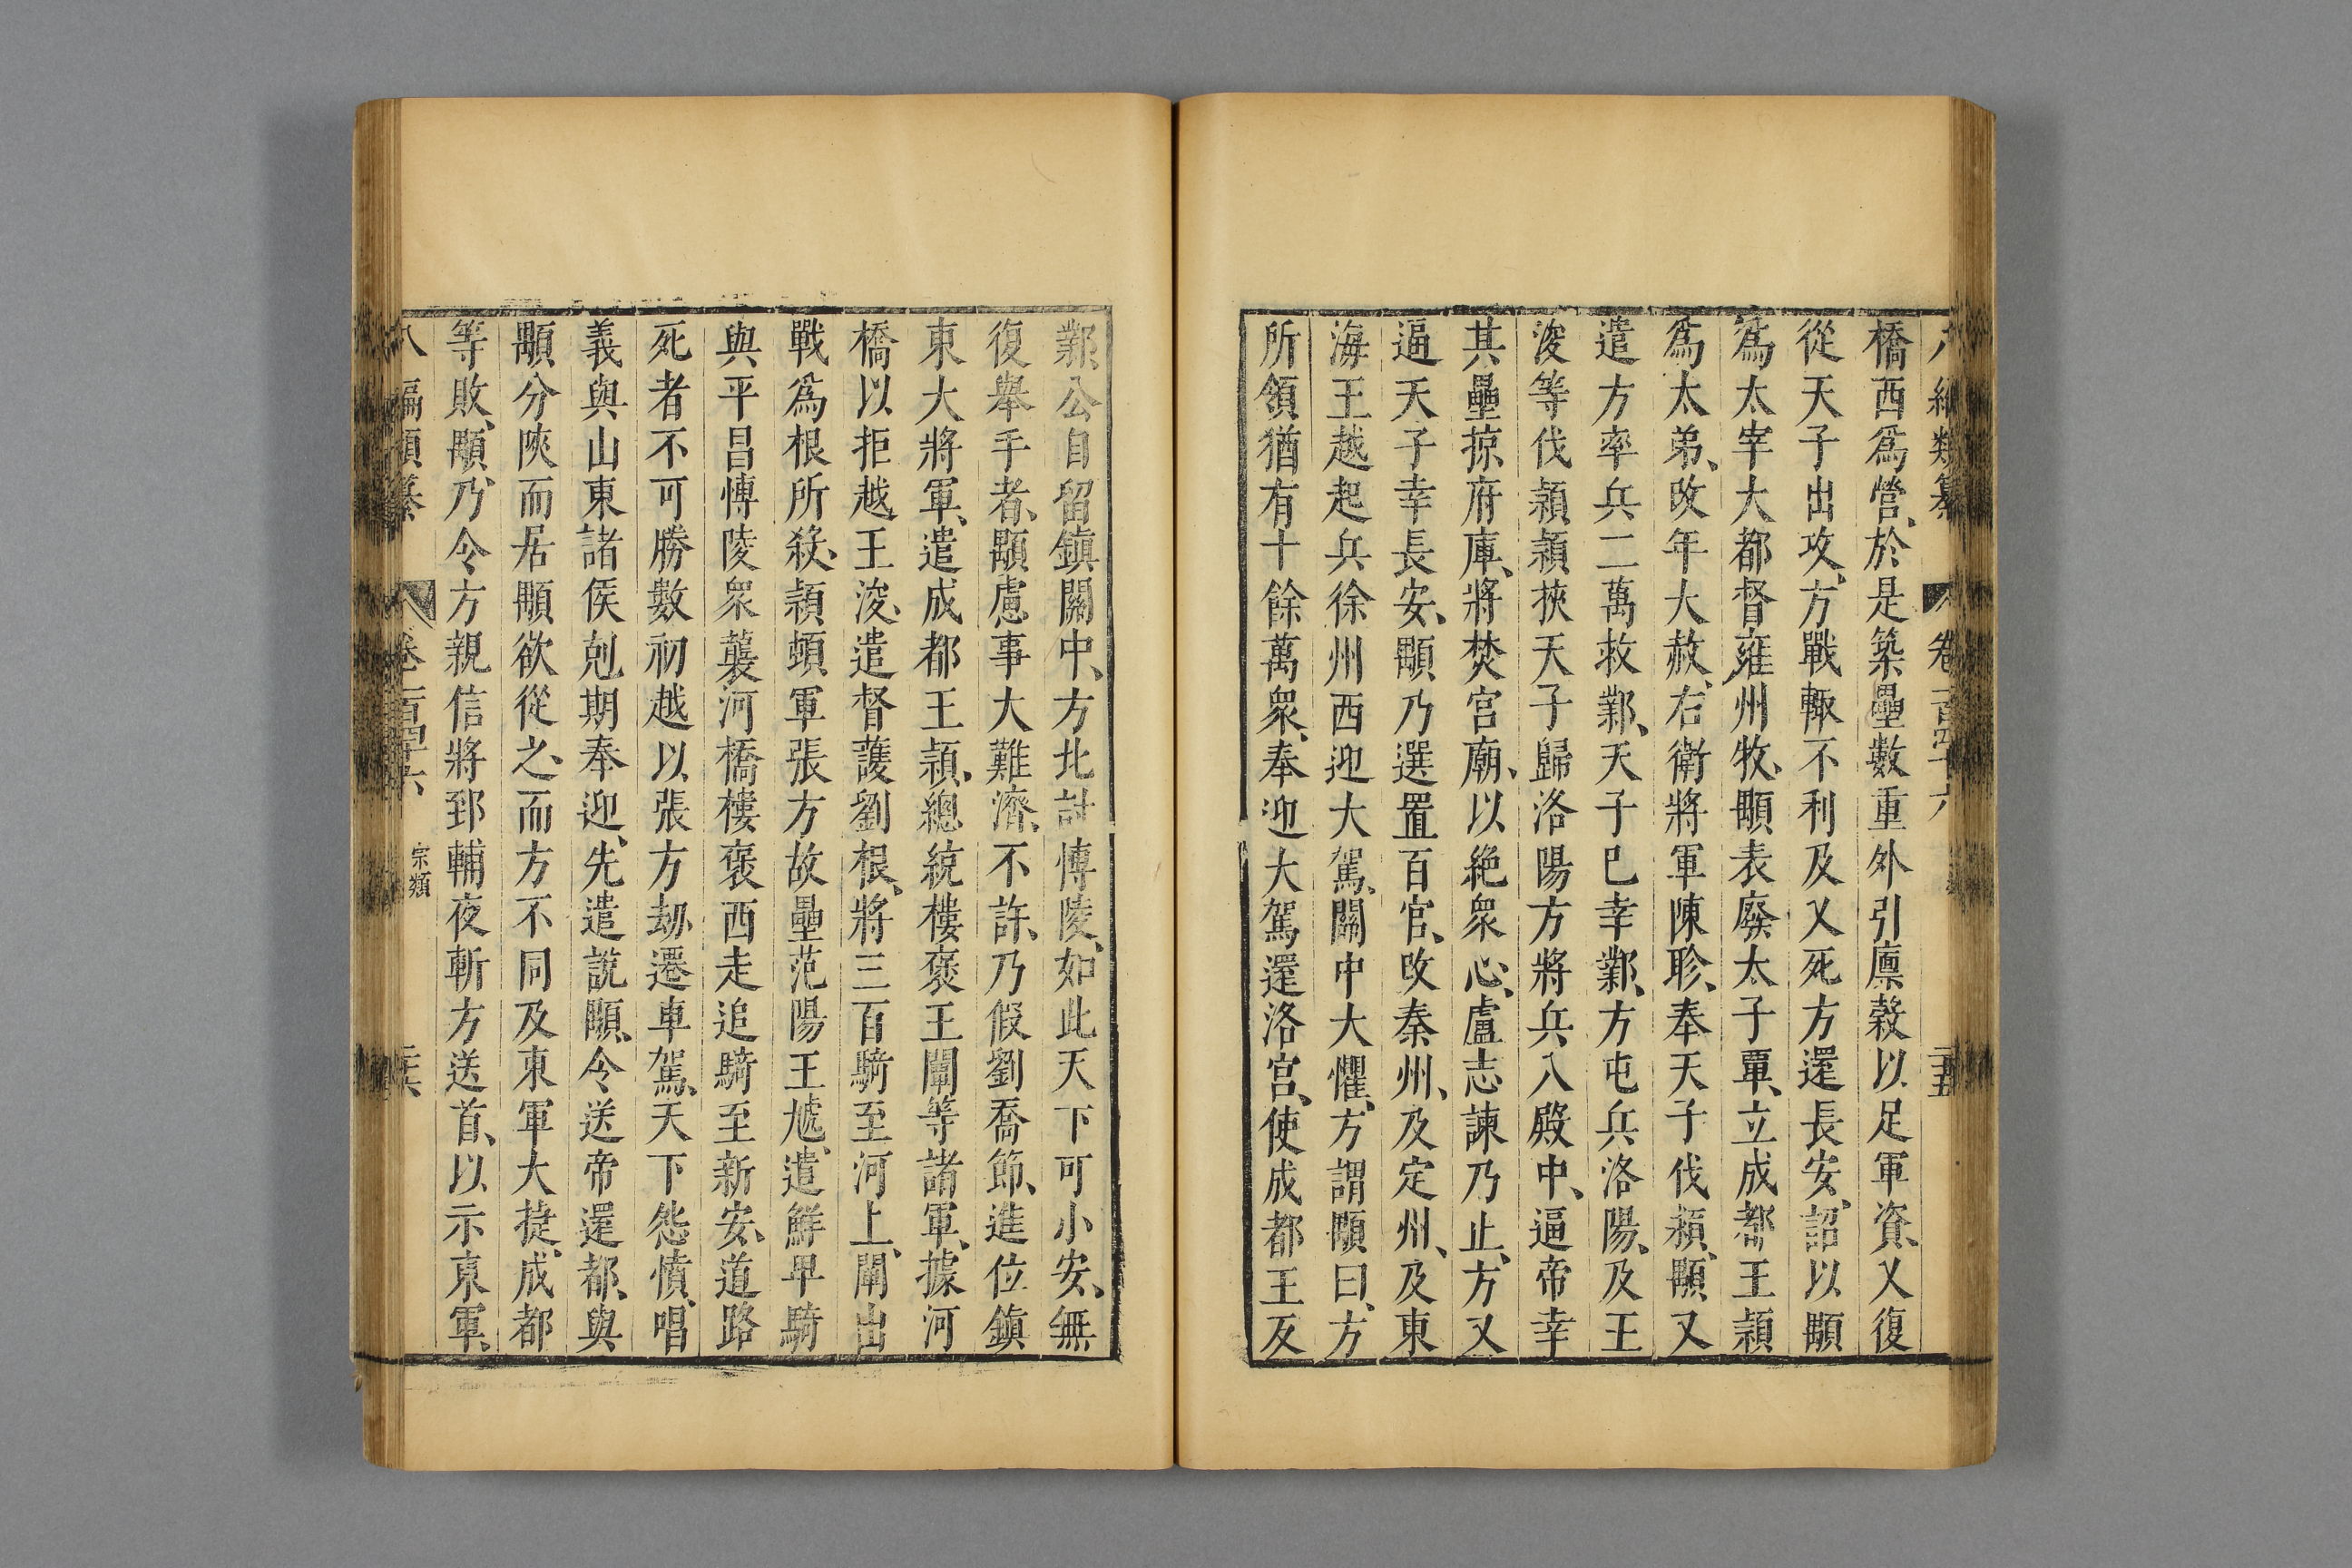 橋西爲營、於是築壘數重外引廩穀以足軍資、乂復
從天子出攻、方戰輙不利及乂死方還長安、詔以顒
爲太宰大都督雍州牧、顒表廢太子覃、立成都王頴
爲太弟、改年大赦、右衛將軍陳眕、奉天子伐頴、顒又
遣方率兵二萬救鄴、天子已幸鄴、方屯兵洛陽、及王
浚等伐頴頴挾天子歸洛陽方將兵入殿中、逼帝幸
其壘掠府庫、將焚宮廟、以絶衆心、盧志諫乃止、方又
逼天子幸長安、顒乃選置百官、改秦州、及定州、及東
海王越起兵徐州西迎大駕、關中大懼、方謂顒曰、方
所領猶有十餘萬衆、奉迎大駕還洛宮、使成都王反
鄴公自留鎮關中、方北討博陵、如此天下可小安、無
復舉手者、顒慮事大難濟、不許、乃假劉喬節、進位鎮
東大將軍、遣成都王頴、總統樓褒王闡等諸軍、據河
橋以拒越王浚、遣督護劉根、將三百騎至河上、闡出
戰爲根所殺、頴頓軍張方故壘范陽王虓、遣鮮卑騎
與平昌博陵衆襲河橋樓褒西走追騎至新安、道路
死者不可勝數初越以張方劫遷車駕、天下怨憤、唱
義與山東諸侯剋期奉迎、先遣說顒、令送帝還都、與
顒分陜而居顒欲從之、而方不同及東軍大捷、成都
等敗、顒、乃令方親信將郅輔夜斬方送首、以示東軍、
八編類纂 卷一百四十六 宗類 二十六